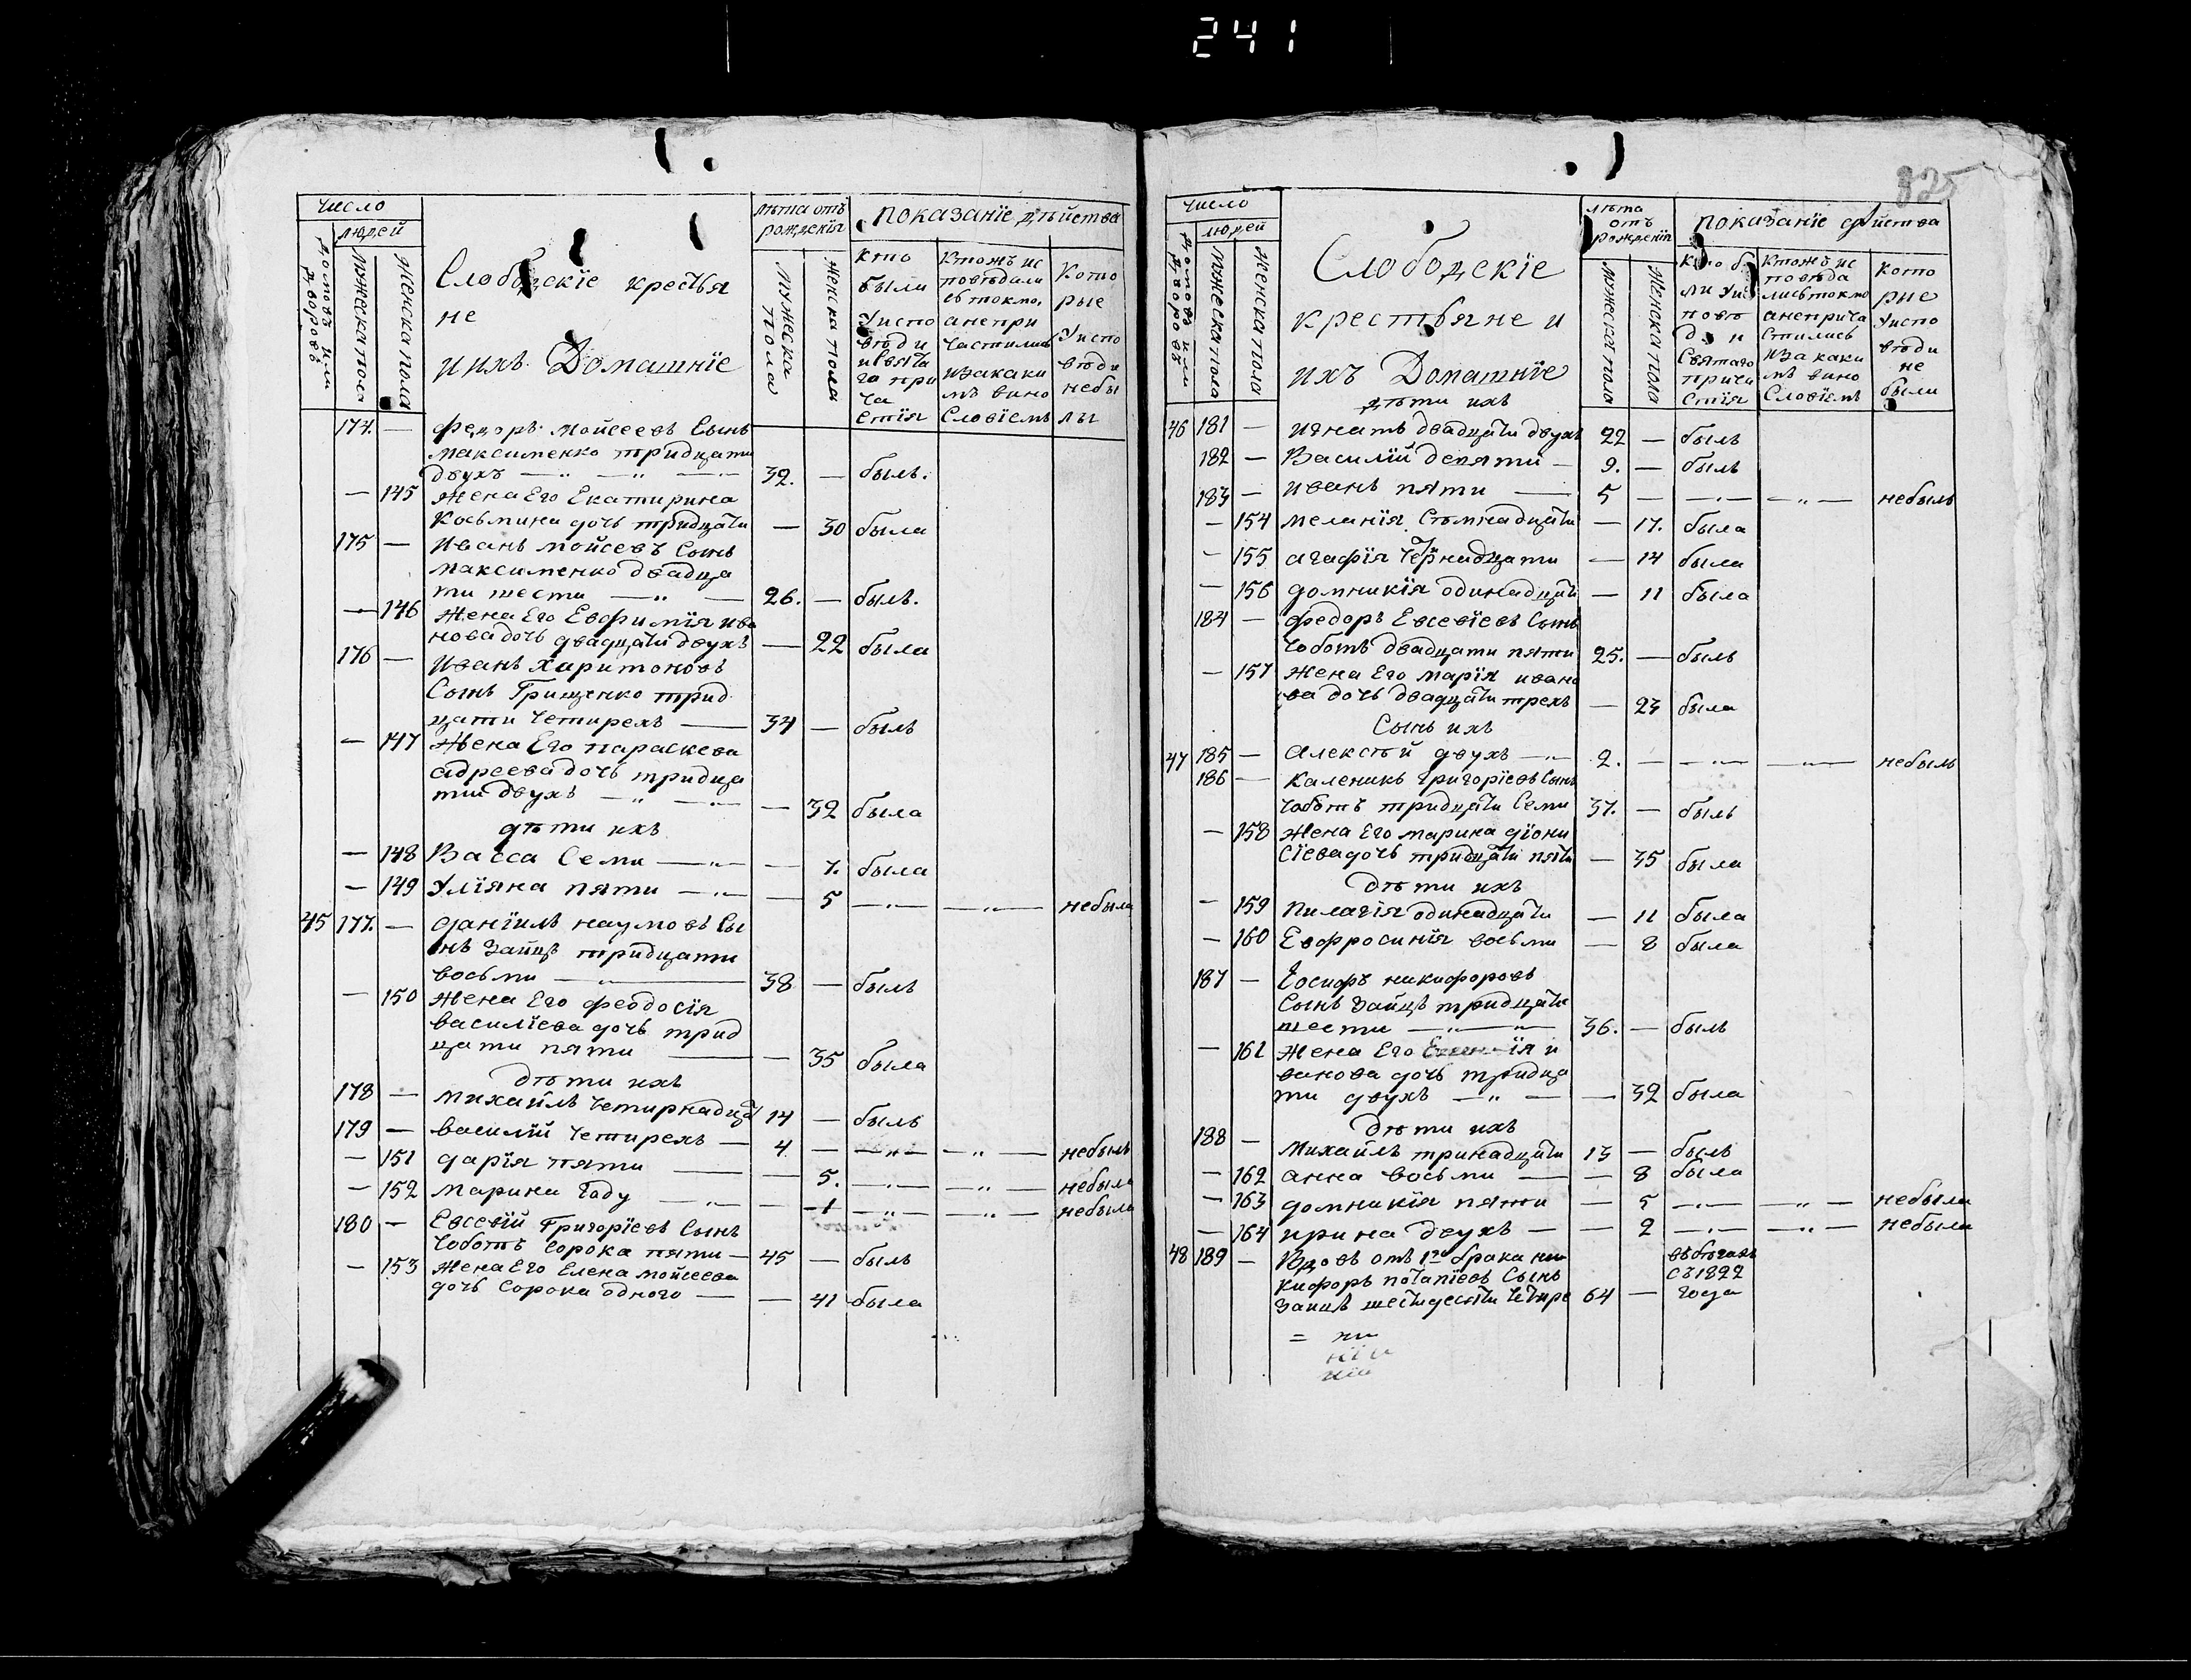 241
число
людей
домовъ или дворовъ
мужеска пола
женска пола
Слободскіе крестья
не
и ихъ Домашніе
лѣта отъ
рожденія
мужеска пола
женска пола
показаніе дѣйства
кто
были
Уиспо
вѣди
исвята
го при
ча
стія
Ктожъ ис
повѣдали
сь токмо,
анепри
частились
изакаки
мъ вино
Словіемъ
Кото
рые
Уиспо
вѣди
небы
лы
174. — федоръ мойсеевъ Сынъ
максименко тридцати
двухъ — 32. — былъ.
— 145 жена Его Екатирина
Косьмина дочь тридцати — 30 была
175 — Иванъ мойсевъ Сынъ
максименко двадца
ти шести — 26. — былъ.
— 146 жена Его Евфимія ива
нова дочь двадцати двухъ — 22 была
176 — Иванъ Харитоновъ
Сынъ Грищенко трид
цати четирехъ — 34 — былъ
— 147 жена Его параскева
адреева дочь тридца
ти двухъ — 32 была
дѣти ихъ
— 148 Васса Семи — 7. была
— 149 Уліяна пяти — 5 — небыла
45 177. — даніилъ наумовъ Сы
нъ Заицъ тридцати
восьми — 38 — былъ
— 150 жена Его феодосія
василіева дочь трид
цати пяти — 35 была
дѣти ихъ
178 — михайлъ четирнадца 14 — былъ
179 — василій четирехъ — 4 — небылъ
— 151 дарія пяти — 5. — небыла
— 152 марина году — 1 — небыла
180 — Евсевій Григоріевъ Сынъ
Чоботъ сорока пяти — 45 — былъ
— 153 жена Его Елена мойсеева
дочь сорока одного — 41 была
825
число
людей
домовъ или дворовъ
мужеска пола
женска пола
Слободскіе
крестьяне и
ихъ Домашніе
дѣти ихъ
лѣта
отъ
рожденія
мужеска пола
женска пола
показаніе дѣйства
кто б
ли Уис
повѣ
ди и
Святаго
причи
стія
Ктожъ ис
повѣда
лись токмо
анеприча
стились
иза каки
мъ вино
Словіемъ
кото
рые
Уиспо
вѣди
не
были
46 181 — игнатъ двадцати двухъ 22 — былъ
182 — Василій девяти — 9. — былъ
183 — иванъ пяти — 5 — небылъ
— 154 меланія Семнадцати — 17. была
— 155 агафія Четирнадцати — 14 была
— 156 домникія одинадцати — 11 была
184 — федоръ Евсевіевъ Сынъ
Чоботъ двадцати пяти 25. — былъ
— 157 жена Его марія ивано
ва дочь двадцати трехъ — 23 была
Сынъ ихъ
47 185 — алексѣй двухъ — 2. — небылъ
186 — Каленикъ Григоріевъ Сынъ
Чоботъ тридцати Семи 37. — былъ
— 158 жена Его марина діони
сіева дочь тридцати пяти — 35 была
дѣти ихъ
— 159 пилагія одинадцати — 11 была
— 160 Евфросинія восьми — 8 была
187 — Іосифъ никифоровъ
Сынъ Заицъ тридцати
шести — 36. — былъ
— 161 жена Его и
ванова дочь тридца
ти двухъ — 32 была
дѣти ихъ
188 — михайлъ тринадцати 13 — былъ
— 162 анна восьми — 8 была
— 163 домникія пяти — 5 — небыла
— 164 ирина двухъ — 2 — небыла
48 189 — Вдовъ отъ 1го брака ни
кифоръ потапіевъ Сынъ
Заицъ шестдесяти четире 64 — въ бѣгахъ
съ 1822
года
= хъ